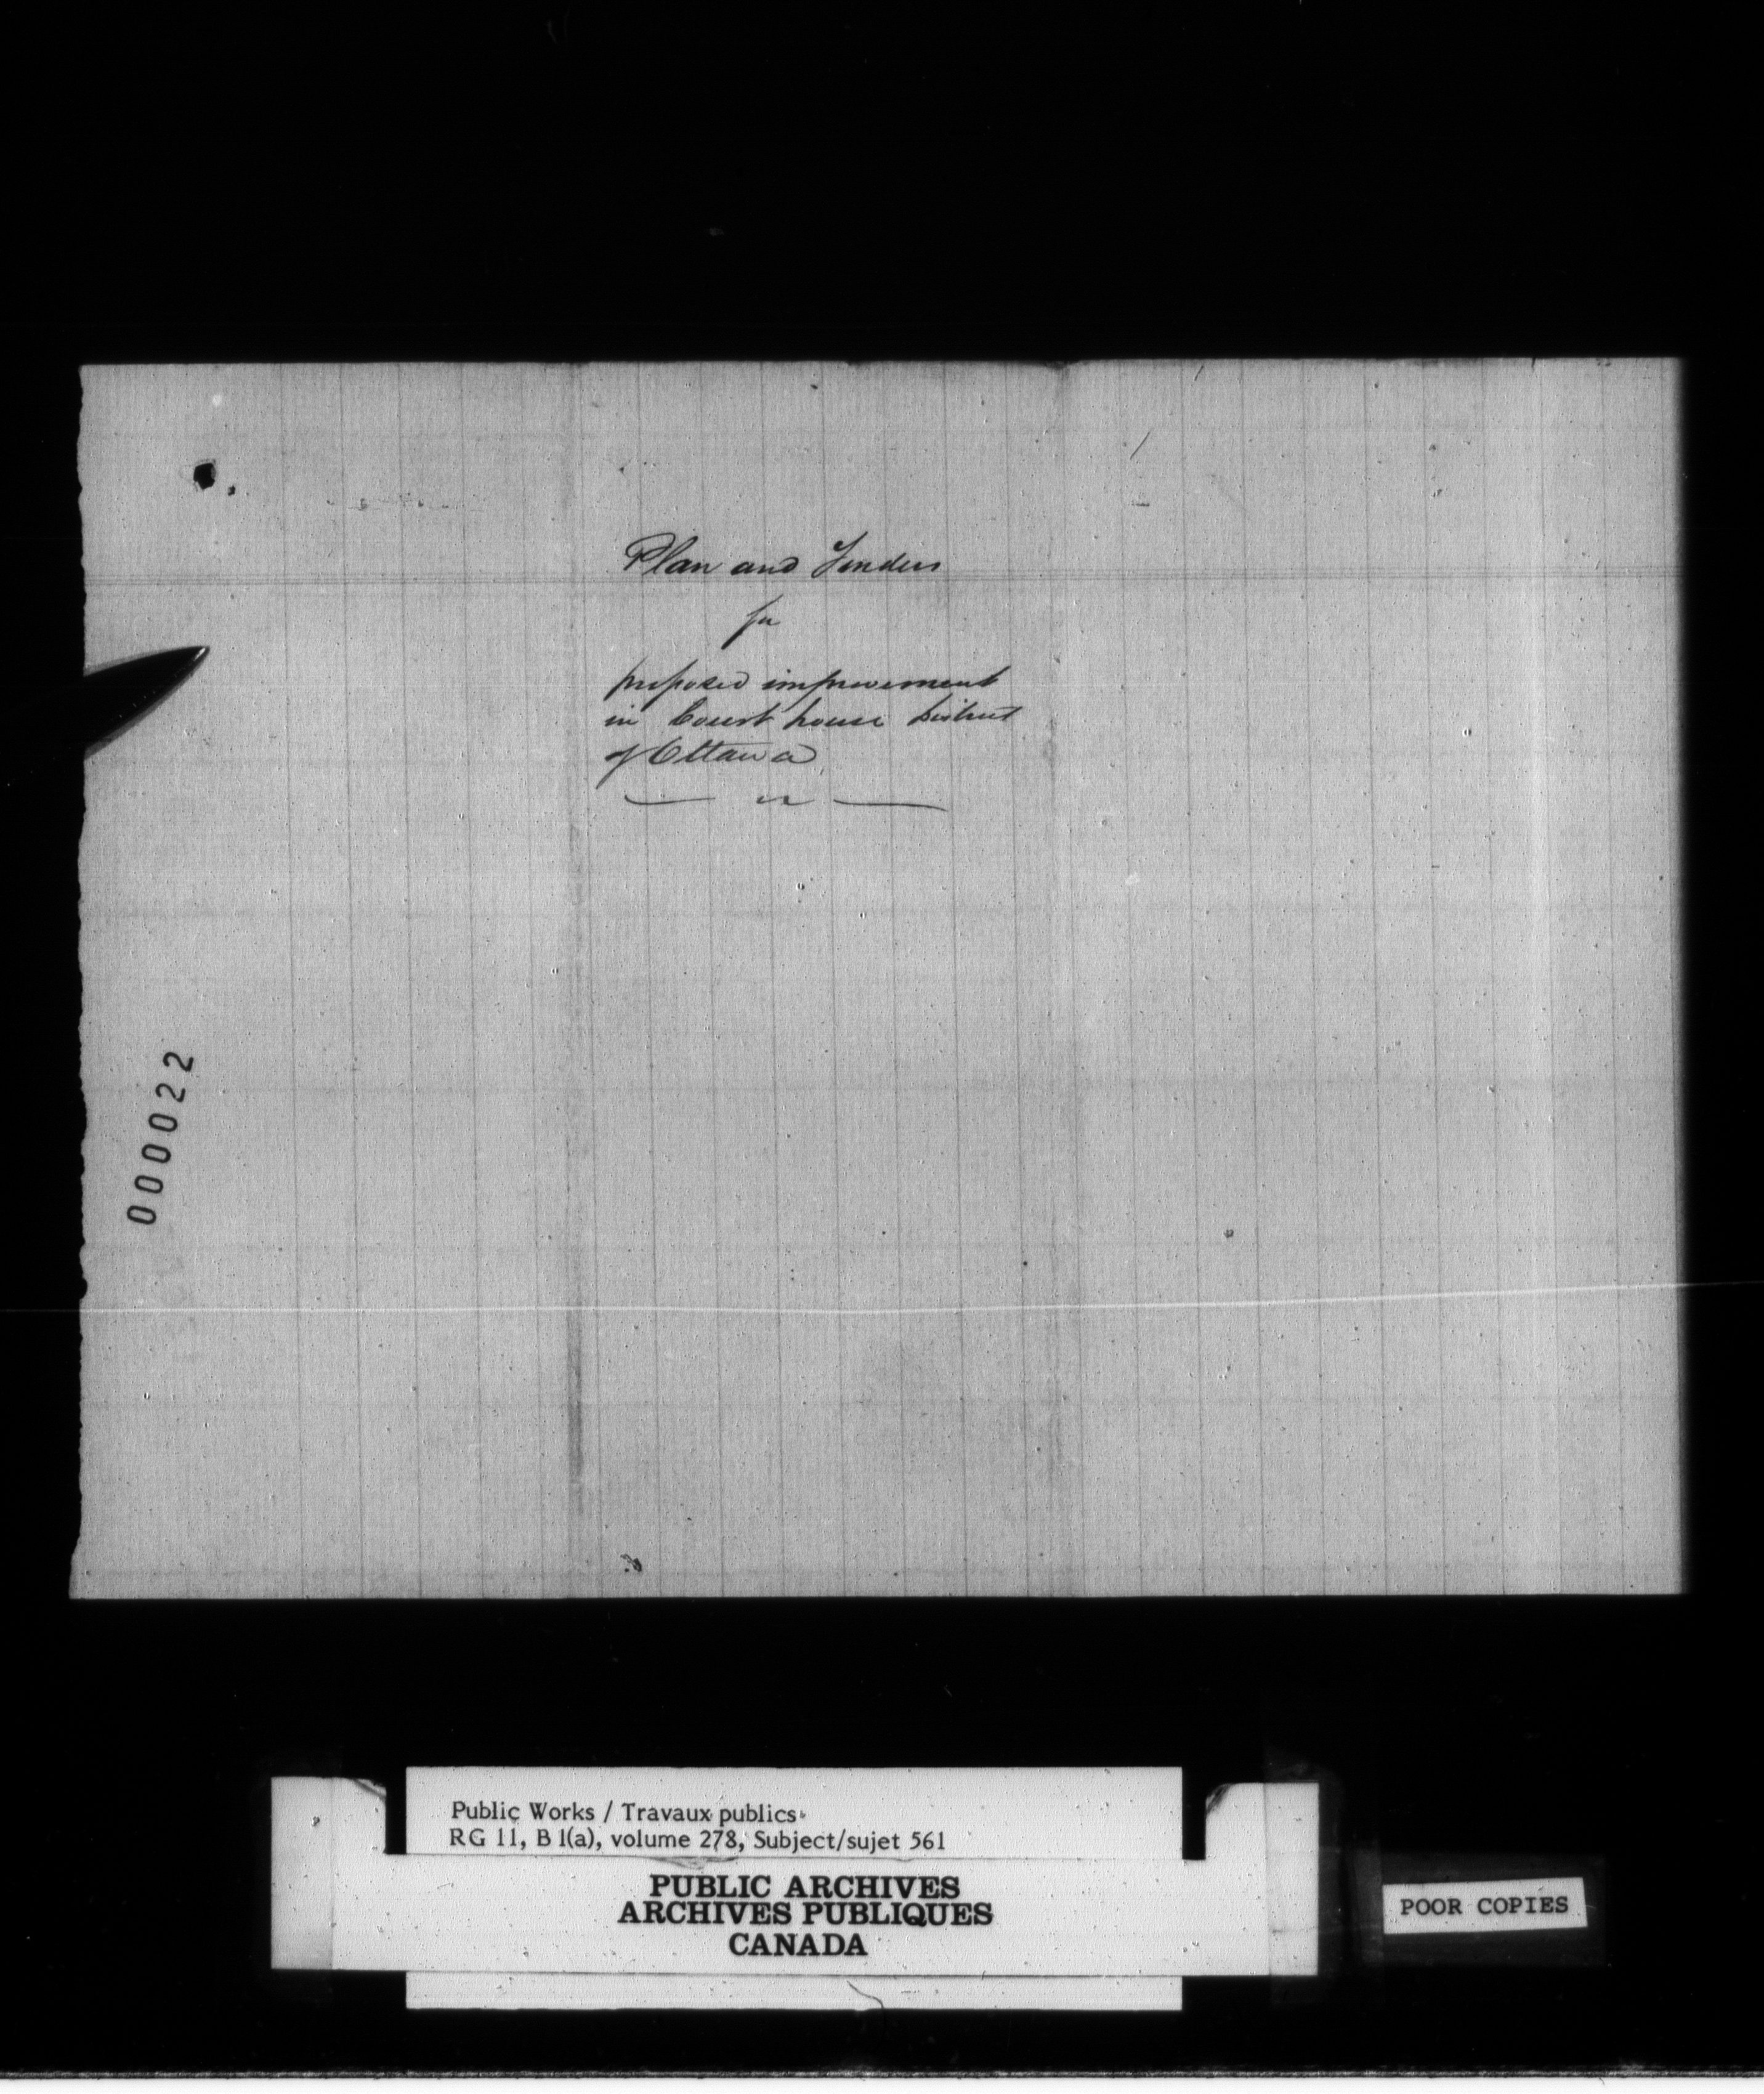 Plan and Tenders
for
proposed improvement
in Court house District
of Ottawa
000022
Public Works / Travaux publics
RG 11, B 1(a), volume 278, Subject/sujet 561
PUBLIC ARCHIVES
ARCHIVES PUBLIQUES
CANADA
POOR COPIES